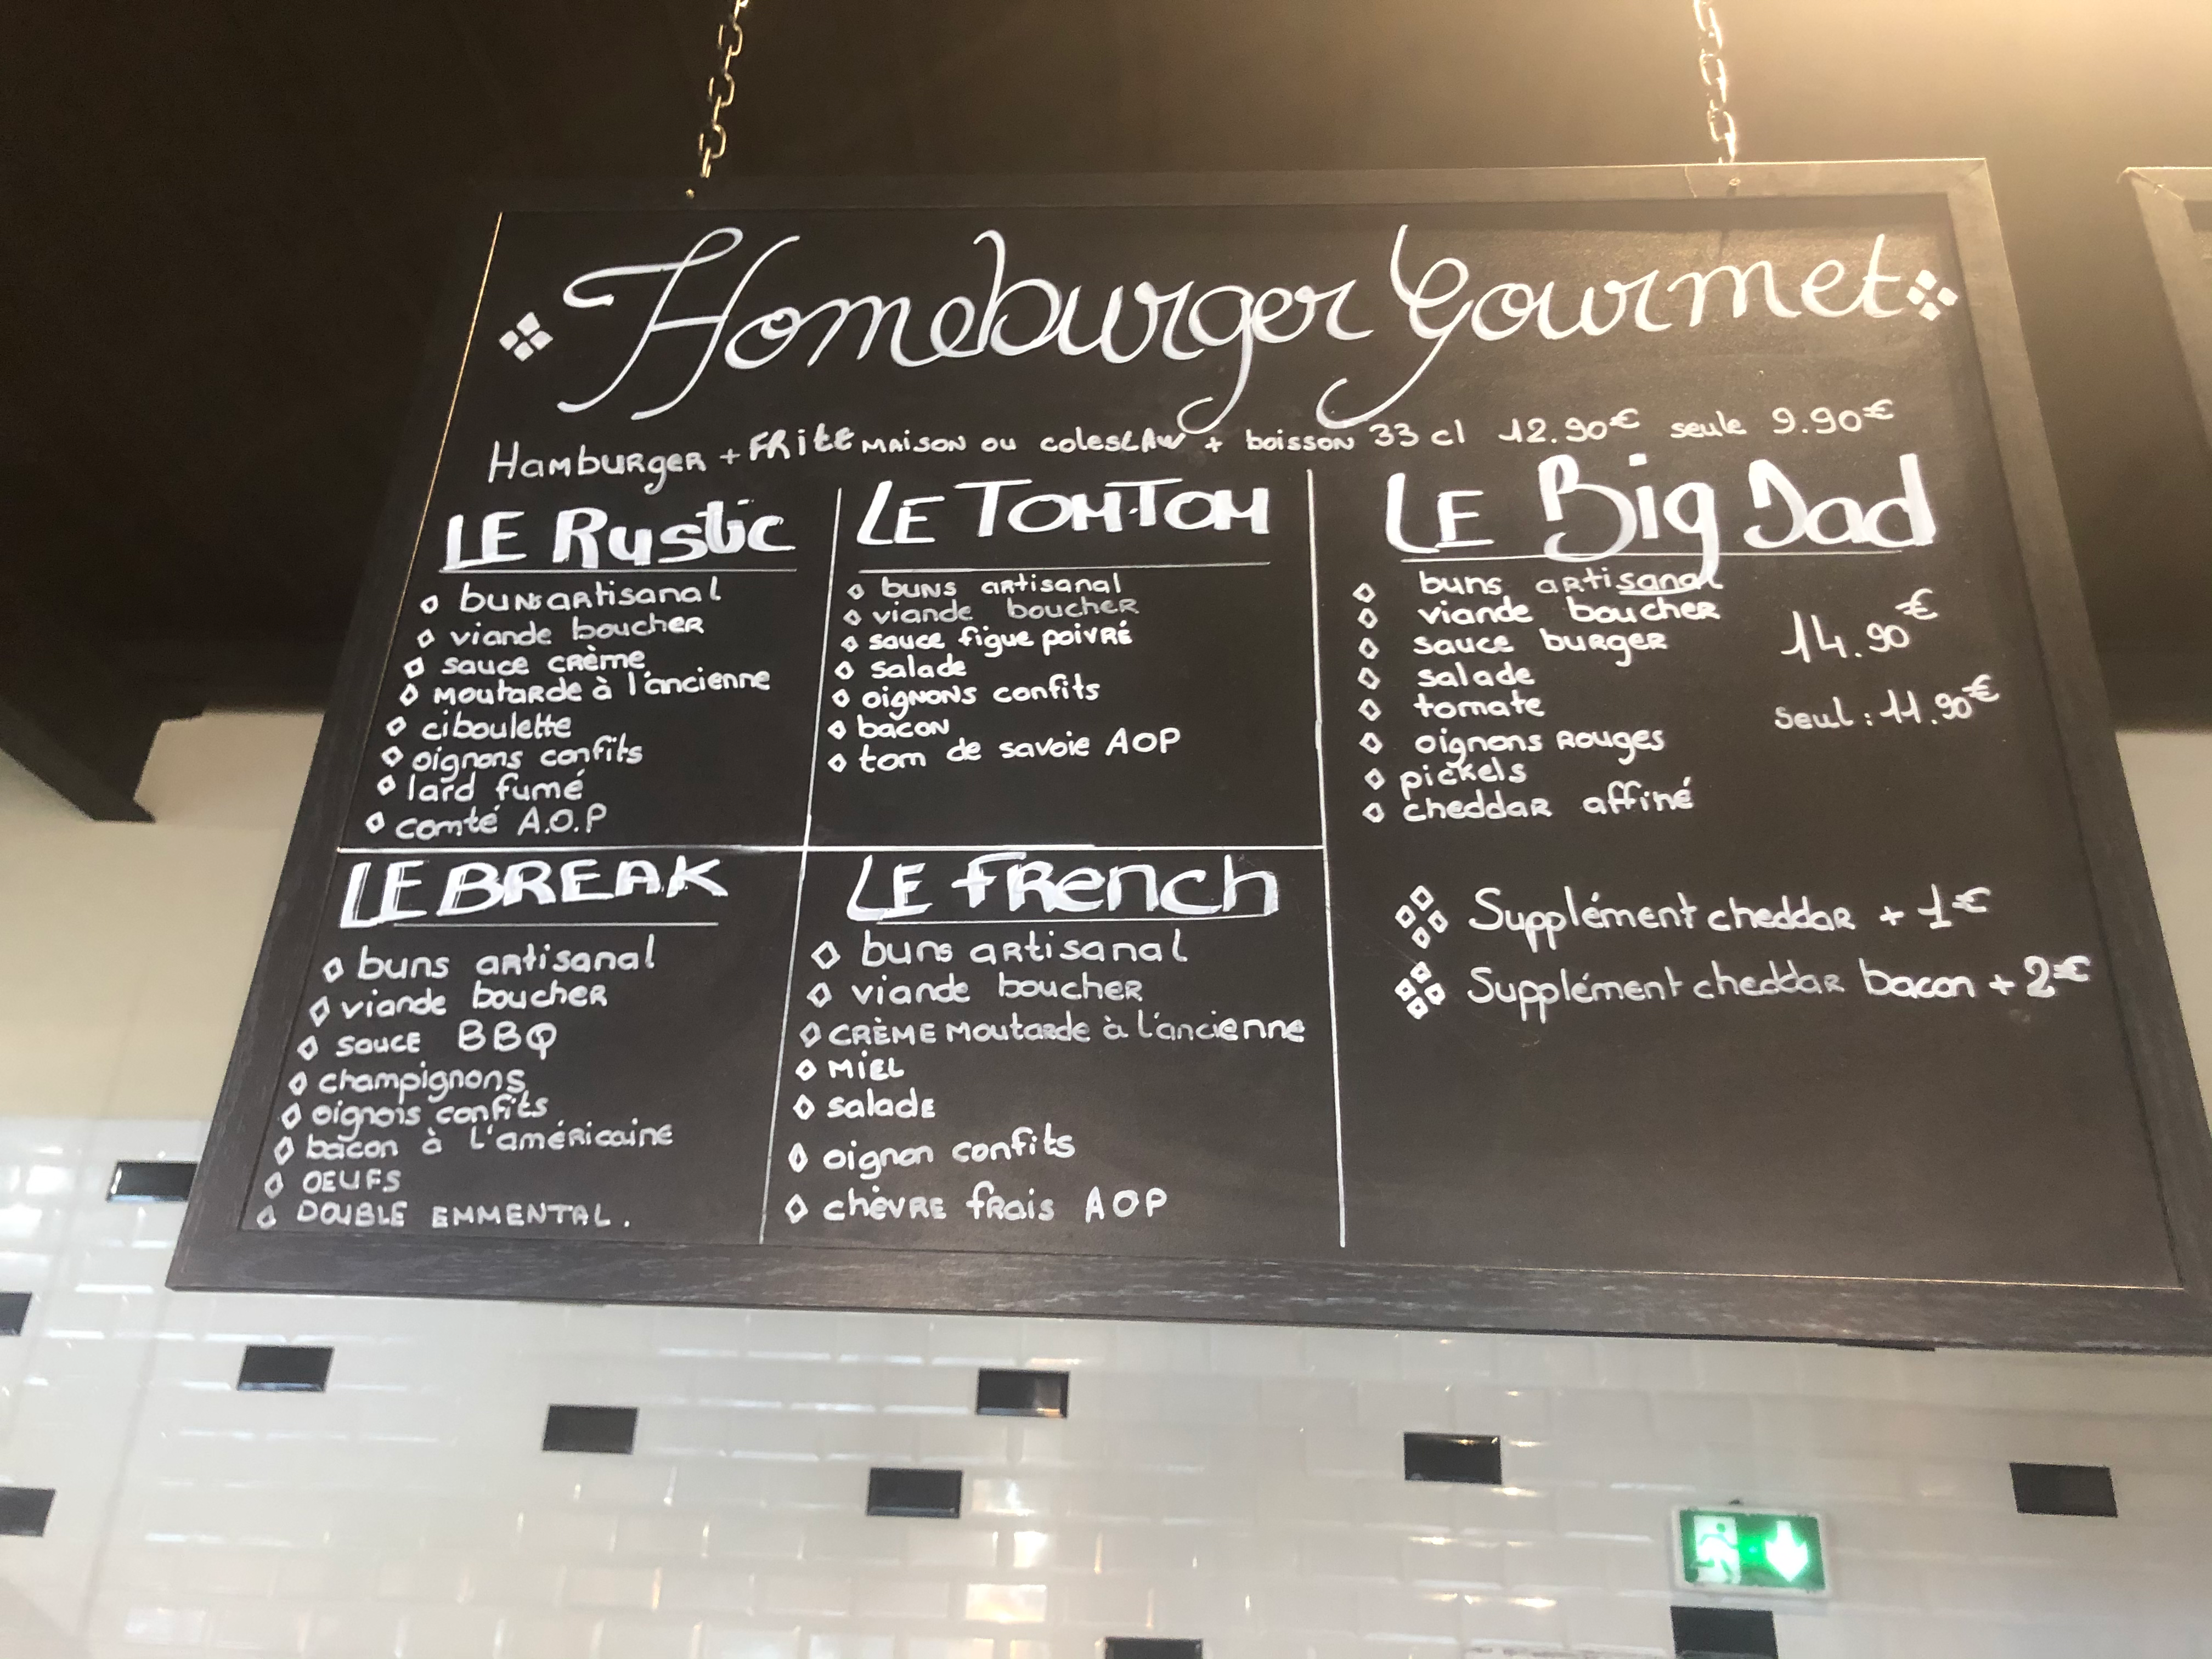 Homeburger Gourmet
Hamburger + FRite maison ou coleslaw + boisson 33 cl 12.90€ seule 9.90€
LE Rustic
buns artisanal
viande boucher
sauce crème
moutarde à l'ancienne
ciboulette
oignons confits
lard fumé
comté A.O.P
LE TOMTOM
buns artisanal
viande boucher
sauce figue poivré
salade
oignons confits
bacon
tom de savoie AOP
LE Big Dad
buns artisanal
viande boucher
sauce burger
salade
tomate
oignons rouges
pickels
cheddar affiné
14.90€
seul : 11.90€
LE BREAK
buns artisanal
viande boucher
sauce BBQ
champignons
oignois confits
bacon à l'américaine
OEUFS
DOUBLE EMMENTAL.
LE french
buns artisanal
viande boucher
CRÈME Moutarde à l'ancienne
MIEL
salade
oignon confits
chèvre frais AOP
Supplément cheddar + 1€
Supplément cheddar bacon + 2€